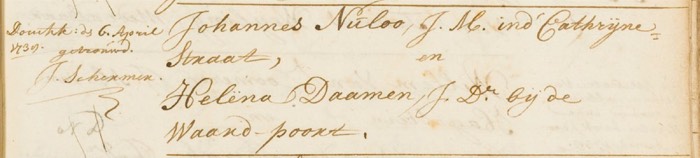 Donckk: ds 6. April
1739.
getrouwd.
J. Schermer.
Johannes Núloo, J. M. ind' Cathrijne=
straat,
en
Helëna Daamen, J. Dr. bij de
Waard-poort.